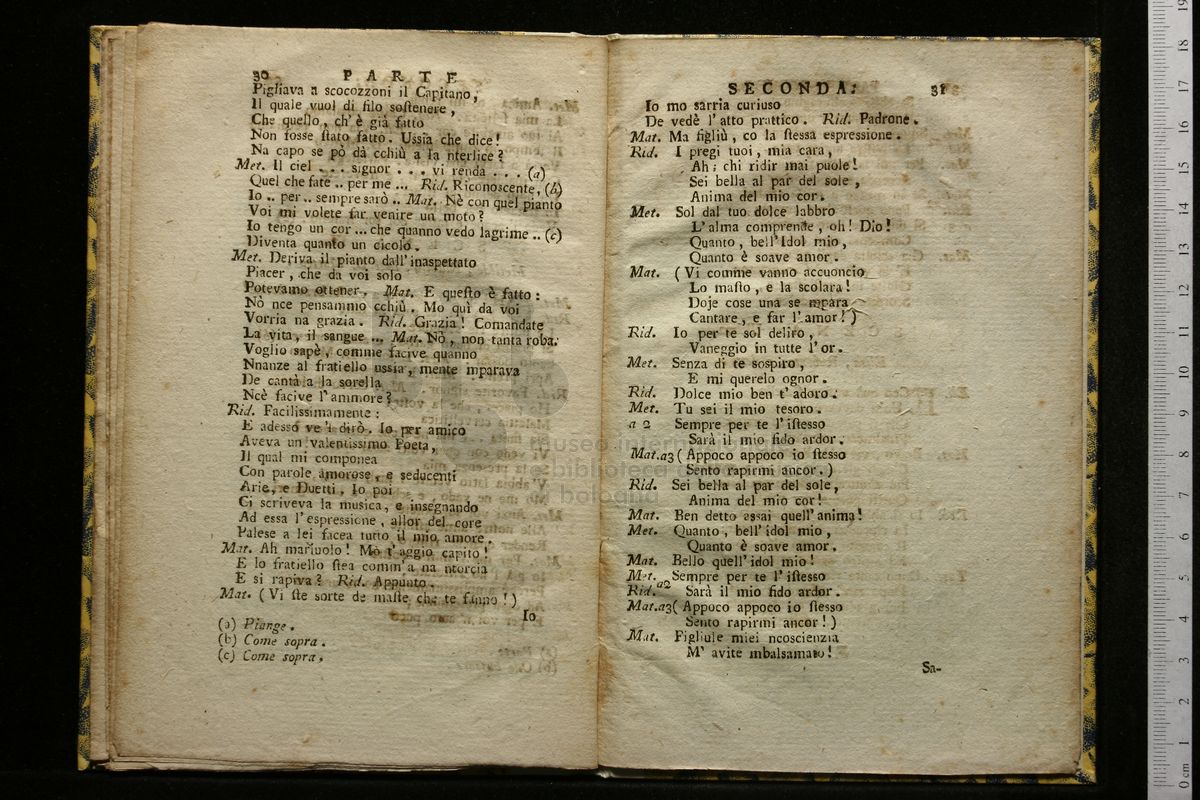 30 PARTE
Pigliava a scocozzoni il Capitano,
Il quale vuol di filo ſoſtenere,
Che queſto, ch' è già fatto
Non foſſe ſtato fatto. Ussia che dice!
Na capo se pò dà cchiù a la nterlice?
Met. Il ciel ... signor ... vi renda ... (a)
Quel che fate .. per me ... Rid. Riconoscente, (b)
Io .. per .. sempre sarò .. Mat. Nè con quel pianto
Voi mi volete far venire un moto?
Io tengo un cor ... che quanno vedo lagrime .. (c)
Diventa quanto un cicolo.
Met. Deriva il pianto dall' inaspettato
Piacer, che da voi solo
Potevamo ottener. Mat. E queſto è fatto:
Nò nce pensammo cchiù. Mo quì da voi
Vorria na grazia. Rid. Grazia! Comandate
La vita, il sangue ... Mat. Nò, non tanta roba.
Voglio sapè, comme facive quanno
Nnanze al fratiello ussia, mente mparava
De cantà a la sorella
Ncè facive l'ammore?
Rid. Facilissimamente:
E adesso ve 'l dirò. Io per amico
Aveva un valentissimo Poeta,
Il qual mi componea
Con parole amorose, e seducenti
Arie, e Duetti. Io poi
Ci scriveva la musica, e insegnando
Ad essa l'espressione, allor del core
Palese a lei facea tutto il mio amore.
Mat. Ah mariuolo! Mò t'aggio capito!
E lo fratiello ſtea comm'a na ntorcia
E si rapiva? Rid. Appunto.
Mat. (Vi ſte sorte de maſte che te fanno!)
Io
(a) Piange.
(b) Come sopra.
(c) Come sopra.
SECONDA. 31
Io mo sarria curiuso
De vedè l'atto prattico. Rid. Padrone.
Mat. Ma figliù, co la ſtessa espressione.
Rid. I pregi tuoi, mia cara,
Ah; chi ridir mai puole!
Sei bella al par del sole,
Anima del mio cor.
Met. Sol dal tuo dolce labbro
L'alma comprende, oh! Dio!
Quanto, bell' Idol mio,
Quanto è soave amor.
Mat. (Vi comme vanno accuoncio
Lo maſto, e la scolara!
Doje cose una se mpara
Cantare, e far l'amor!)
Rid. Io per te sol deliro,
Vaneggio in tutte l'or.
Met. Senza di te sospiro,
E mi querelo ognor.
Rid. Dolce mio ben t'adoro.
Met. Tu sei il mio tesoro.
a 2 Sempre per te l'iſtesso
Sarà il mio fido ardor.
Mat.a3 (Appoco appoco io ſtesso
Sento rapirmi ancor.)
Rid. Sei bella al par del sole,
Anima del mio cor!
Mat. Ben detto assai quell' anima!
Met. Quanto, bell' idol mio,
Quanto è soave amor.
Mat. Bello quell' idol mio!
Met. Sempre per te l'iſtesso
Rid. a2 Sarà il mio fido ardor.
Mat.a3 (Appoco appoco io ſtesso
Sento rapirmi ancor!)
Mat. Figliule miei ncoscienzia
M' avite mbalsamato!
Sa-